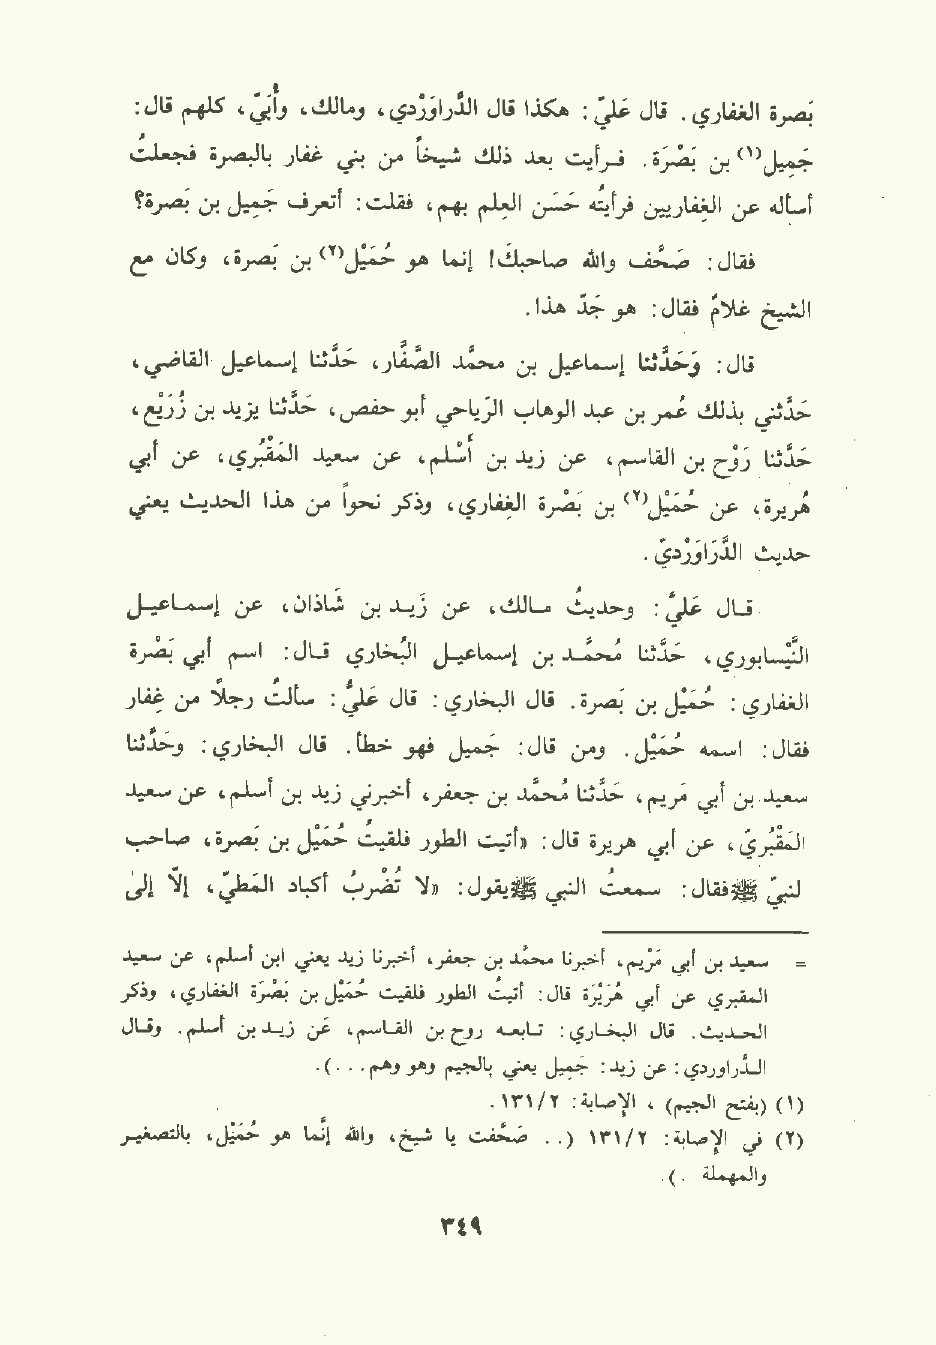 بَصرة الغفاري. قال عَليّ: هكذا قال الدَّراوَرْدي، ومالك، وأُبَيّ، كلهم قال:
جَمِيل(١) بن بَصْرَة. فرأيت بعد ذلك شيخاً من بني غفار بالبصرة فجعلتُ
أسأله عن الغِفاريين فرأيتُه حَسَن العِلم بهم، فقلت: أتعرف جَمِيل بن بَصرة؟
فقال: صَحَّف والله صاحبكَ! إنما هو حُمَيْل(٢) بن بَصرة، وكان مع
الشيخ غلامٌ فقال: هو جَدّ هذا.
قال: وَحَدَّثنا إسماعيل بن محمَّد الصَّفَّار، حَدَّثنا إسماعيل القاضي،
حَدَّثني بذلك عُمر بن عبد الوهاب الرِّياحي أبو حفص، حَدَّثنا يزيد بن زُرَيْع،
حَدَّثنا رَوْح بن القاسم، عن زيد بن أَسْلم، عن سعيد المَقْبُري، عن أبي
هُريرة، عن حُمَيْل(٢) بن بَصْرة الغِفاري، وذكر نحواً من هذا الحديث يعني
حديث الدَّرَاوَرْديّ.
قال عَليَّ: وحديثُ مالك، عن زَيد بن شَاذان، عن إسماعيل
النَّيْسابوري، حَدَّثنا مُحمَّد بن إسماعيل البُخاري قال: اسم أبي بَصْرة
الغفاري: حُمَيْل بن بَصرة. قال البخاري: قال عَليُّ: سألتُ رجلاً من غِفار
فقال: اسمه حُمَيْل. ومن قال: جَميل فهو خطأ. قال البخاري: وحَدَّثنا
سعيد بن أبي مَريم، حَدَّثنا مُحمَّد بن جعفر، أخبرني زيد بن أسلم، عن سعيد
المَقْبُريّ، عن أبي هريرة قال: «أتيت الطور فلقيتُ حُمَيْل بن بَصرة، صاحب
لنبيّ ﷺ فقال: سمعتُ النبي ﷺ يقول: «لا تُضْرَبُ أكباد المَطيّ، إلّا إلى
= سعيد بن أبي مَرْيم، أخبرنا محمَّد بن جعفر، أخبرنا زيد يعني ابن أسلم، عن سعيد
المقبري عن أبي هُرَيْرَة قال: أتيتُ الطور فلقيت حُمَيْل بن بَصْرَة الغفاري، وذكر
الحديث. قال البخاري: تابعه روح بن القاسم، عَن زيد بن أسلم. وقال
الدَّراوردي: عن زيد: جَمِيل يعني بالجيم وهو وهم...).
(١) (بفتح الجيم)، الإصابة: ١٣١/٢.
(٢) في الإصابة: ١٣١/٢ (.. صَحَّفت يا شيخ، والله إنَّما هو حُمَيْل، بالتصغير
والمهملة .).
٣٤٩